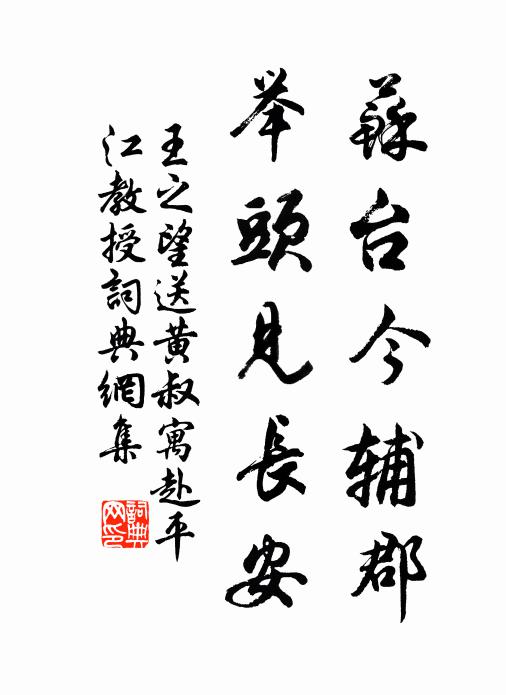 蘇台今辅郡
举頭見長安
王之望送黄叔寓赴平
江教授詞典網集
詞典
网印